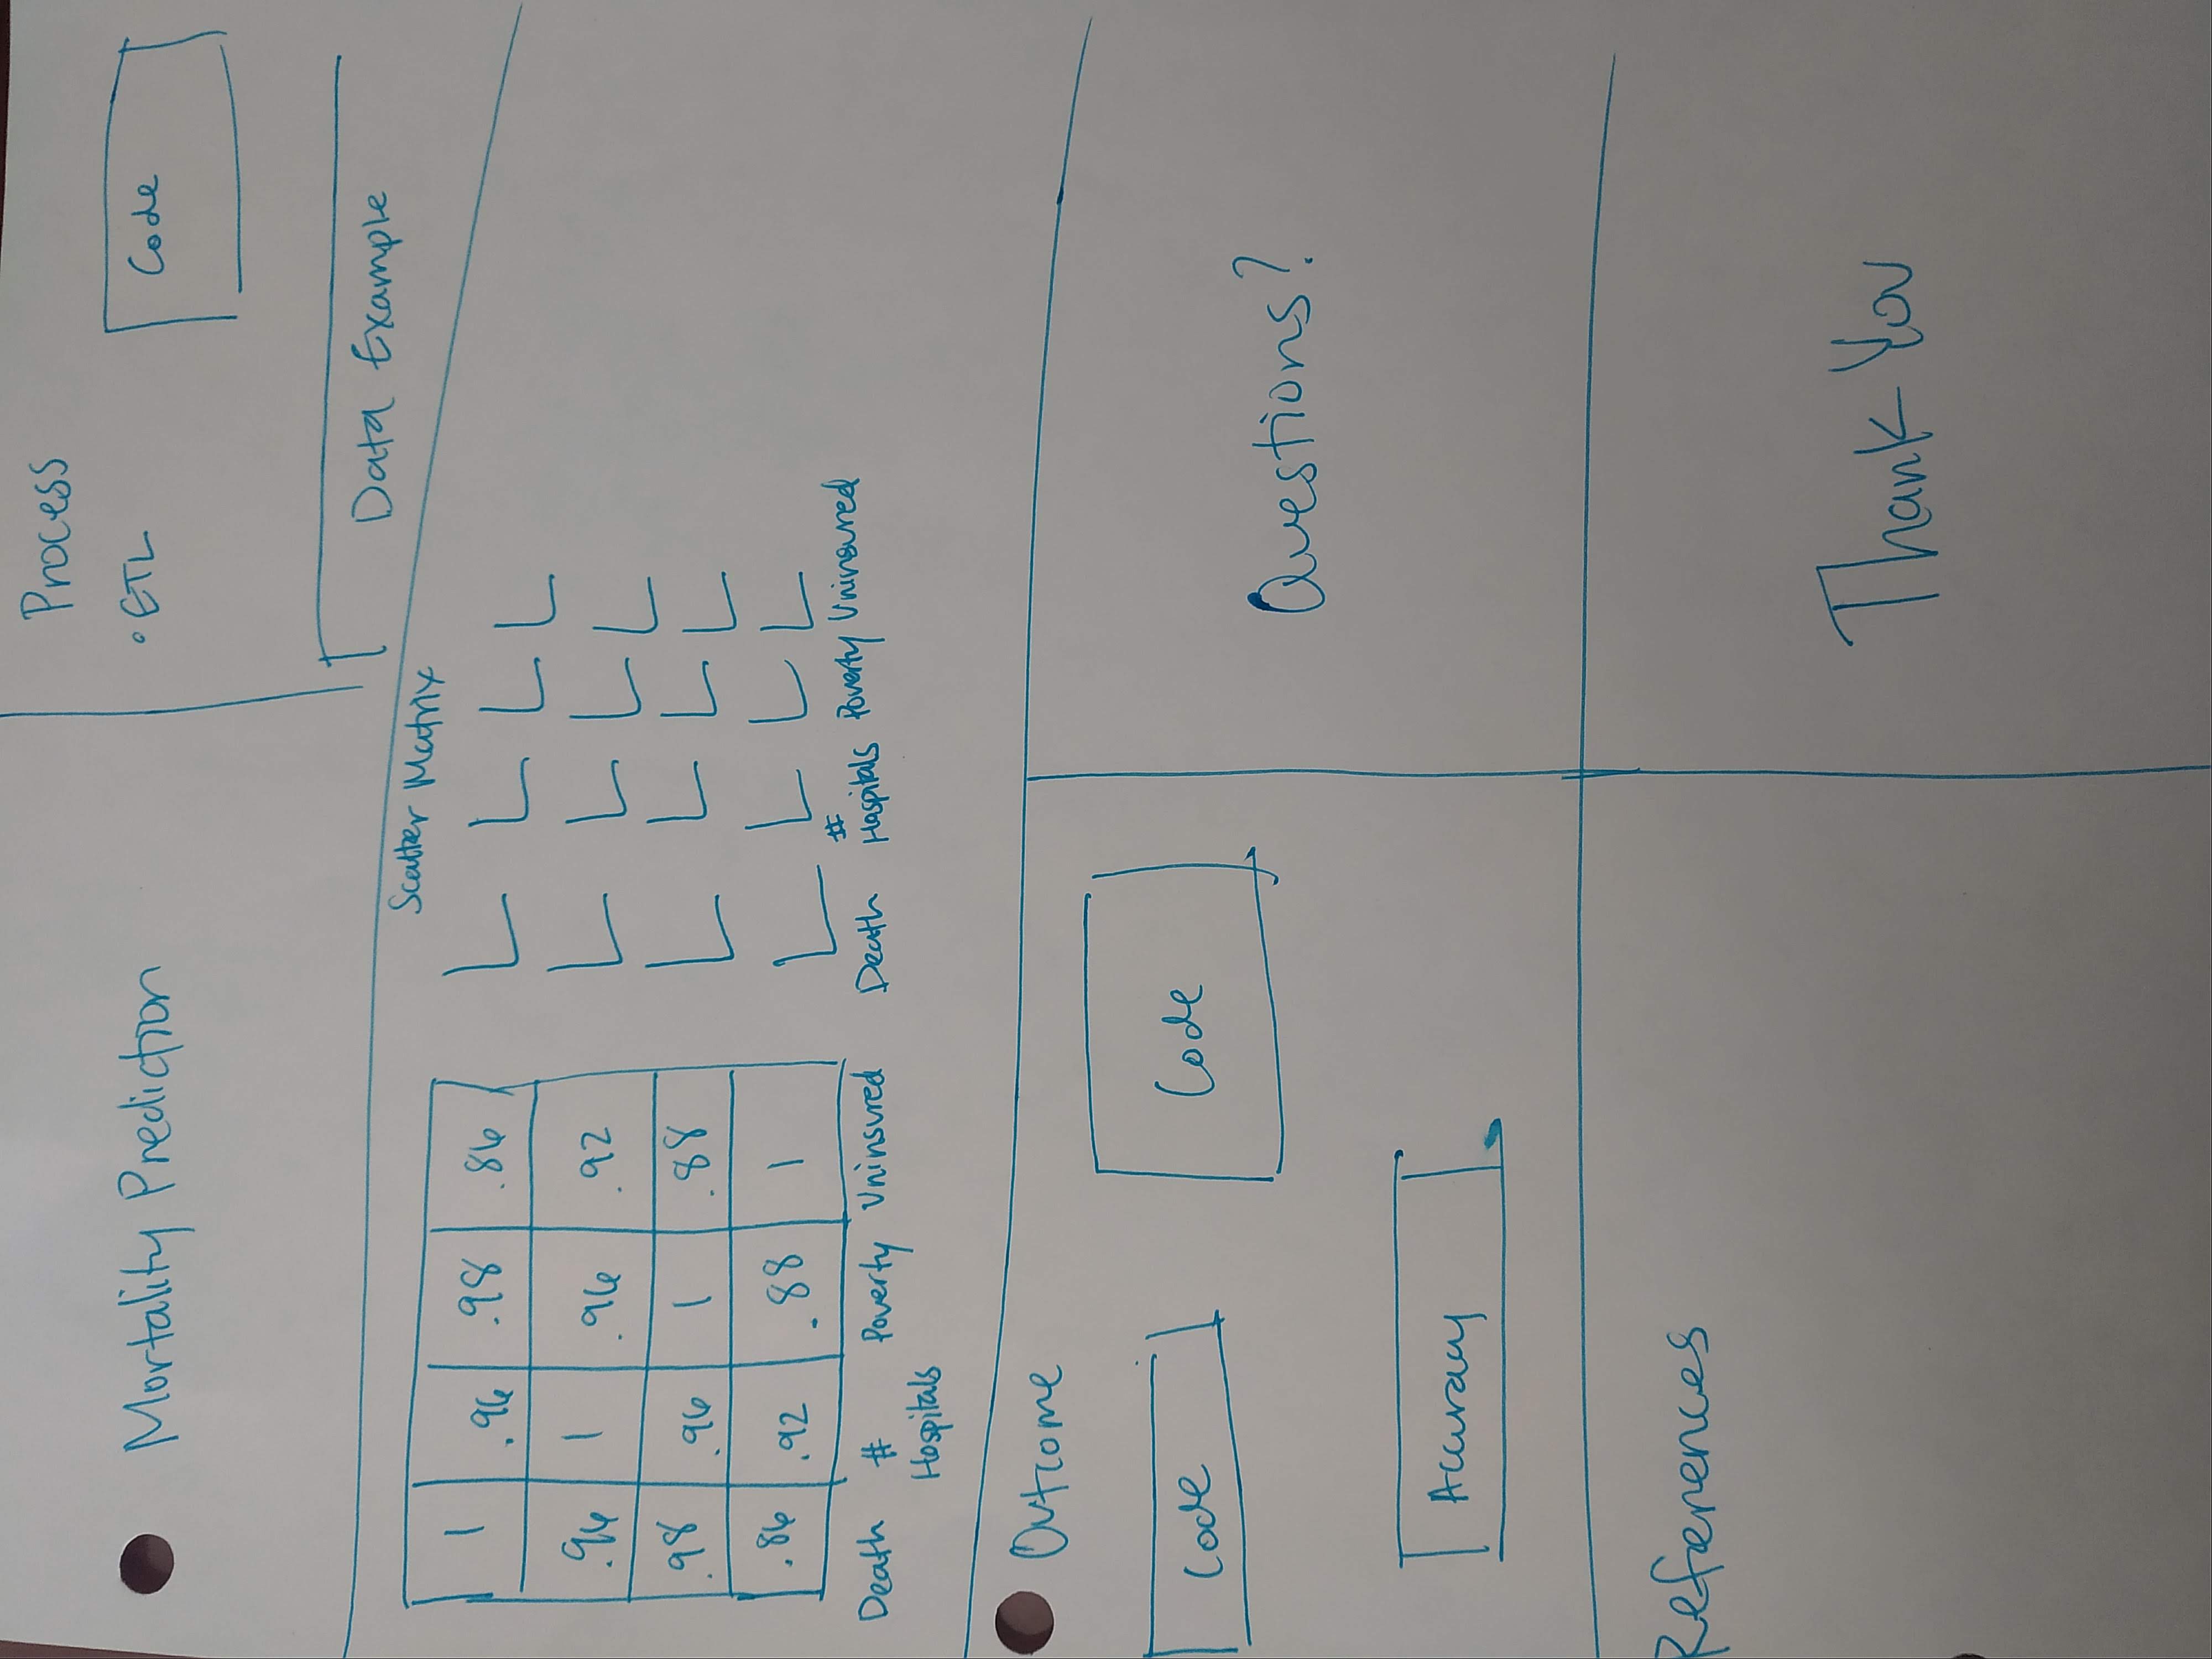 Mortality Prediction
Process
• ETL
Code
Data Example
1 .96 .98 .86
.96 1 .96 .92
.98 .96 1 .88
.86 .92 .88 1
Death # Hospitals Poverty Uninsured
Scatter Matrix
Death # Hospitals Poverty Uninsured
Outcome
Code
Code
Accuracy
Questions?
References
Thank You